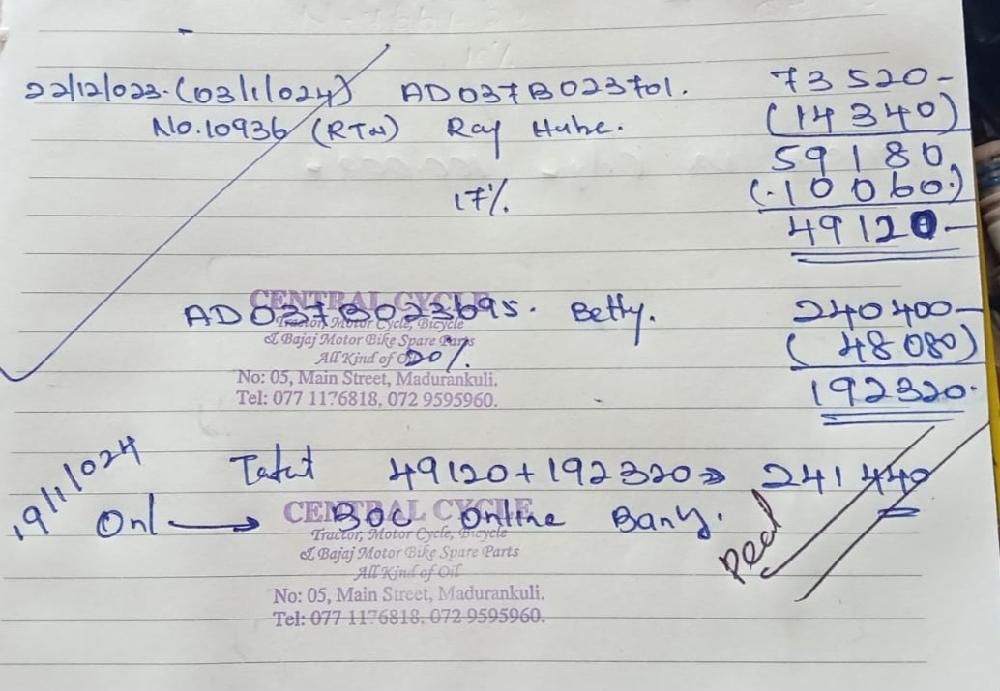 22/12/023. (03/1/024) AD037B023701. 73520-
No. 10936 (RTN) Raj Hube. (14340)
59180
17% (-10060.)
49120-
CENTRAL CYCLE
AD037B023695. Betty. 240400-
Tractor, Motor Cycle, Bicycle
& Bajaj Motor Bike Spare Parts
All Kind of Oil
20% (48080)
No: 05, Main Street, Madurankuli.
192320.
Tel: 077 1176818, 072 9595960.
19/1/024
Total 49120+192320 241440
CENTRAL CYCLE
Onl → BOC Online Bany.
Tractor, Motor Cycle, Bicycle
& Bajaj Motor Bike Spare Parts
All Kind of Oil
No: 05, Main Street, Madurankuli.
Tel: 077 1176818, 072 9595960.